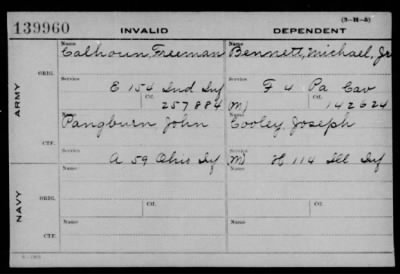 (3-H-5)
139960 INVALID DEPENDENT
Name Name
Calhoun, Freeman Bennett, Michael, Jr
ARMY ORIG. Service Service
E 154 Ind Inf F 4 Pa Cav
Ctf. 257884 (M) Ctf. 142624
Name Name
Pangburn, John Cooley, Joseph
CTF. Service Service
A 59 Ohio Inf (M) H 114 Ill Inf
NAVY Name Name
ORIG. Ctf. Ctf.
Name Name
CTF.